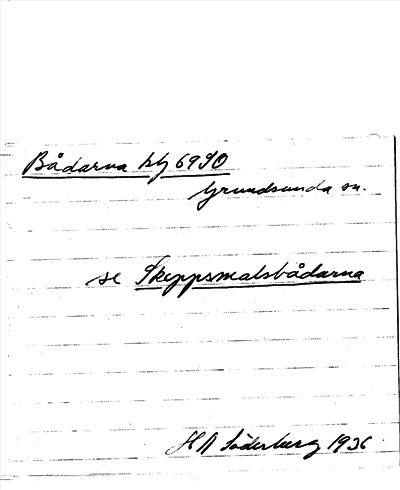 Bådarna kbl 69SO
Grundsunda sn.
se Skeppsmalsbådarna
H A Söderberg 1936